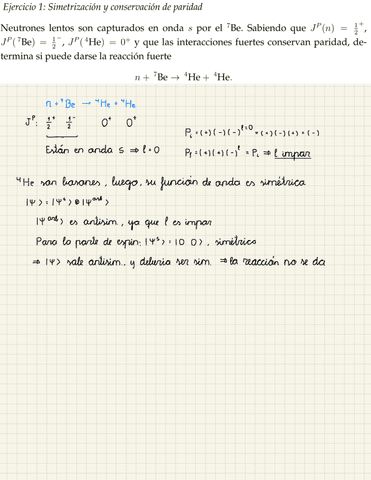 Ejercicio 1: Simetrización y conservación de paridad
Neutrones lentos son capturados en onda s por el ⁷Be. Sabiendo que Jᴾ(n) = 1/2⁺,
Jᴾ(⁷Be) = 1/2⁻, Jᴾ(⁴He) = 0⁺ y que las interacciones fuertes conservan paridad, de-
termina si puede darse la reacción fuerte
n + ⁷Be → ⁴He + ⁴He.
n + ⁷Be → ⁴He + ⁴He
Jᴾ: 1/2⁺ 1/2⁻ 0⁺ 0⁺
Están en onda s ⇒ l = 0
Pᵢ = (+)(-)(-)^{l=0} = (+)(-)(+) = (-)
P_f = (+)(+)(-)^l = Pᵢ ⇒ l impar
⁴He son bosones, luego, su función de onda es simétrica
|Ψ⟩ = |Ψˢ⟩ ⊗ |Ψᵒʳᵇ⟩
|Ψᵒʳᵇ⟩ es antisim, ya que l es impar
Para la parte de espin: |Ψˢ⟩ = |0 0⟩, simétrico
⇒ |Ψ⟩ sale antisim, y debería ser sim. ⇒ la reacción no se da